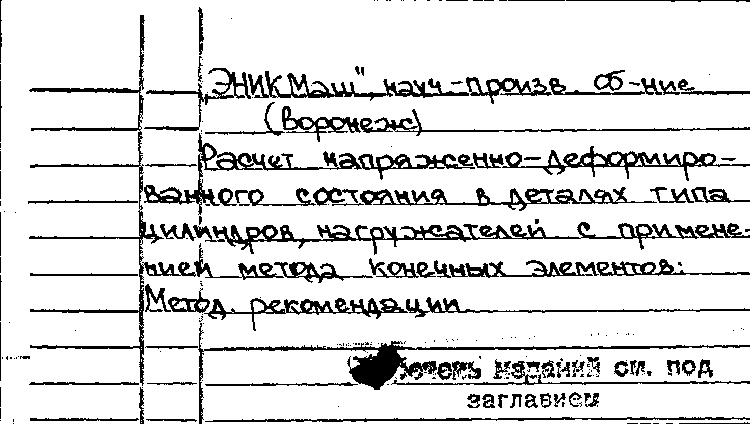 „ЭНИКМаш", науч-произв. об-ние
(Воронеж)
Расчет напряженно-деформиро-
ванного состояния в деталях типа
цилиндров, нагружателей с примене-
нием метода конечных элементов:
Метод. рекомендации
изданий см. под
заглавием